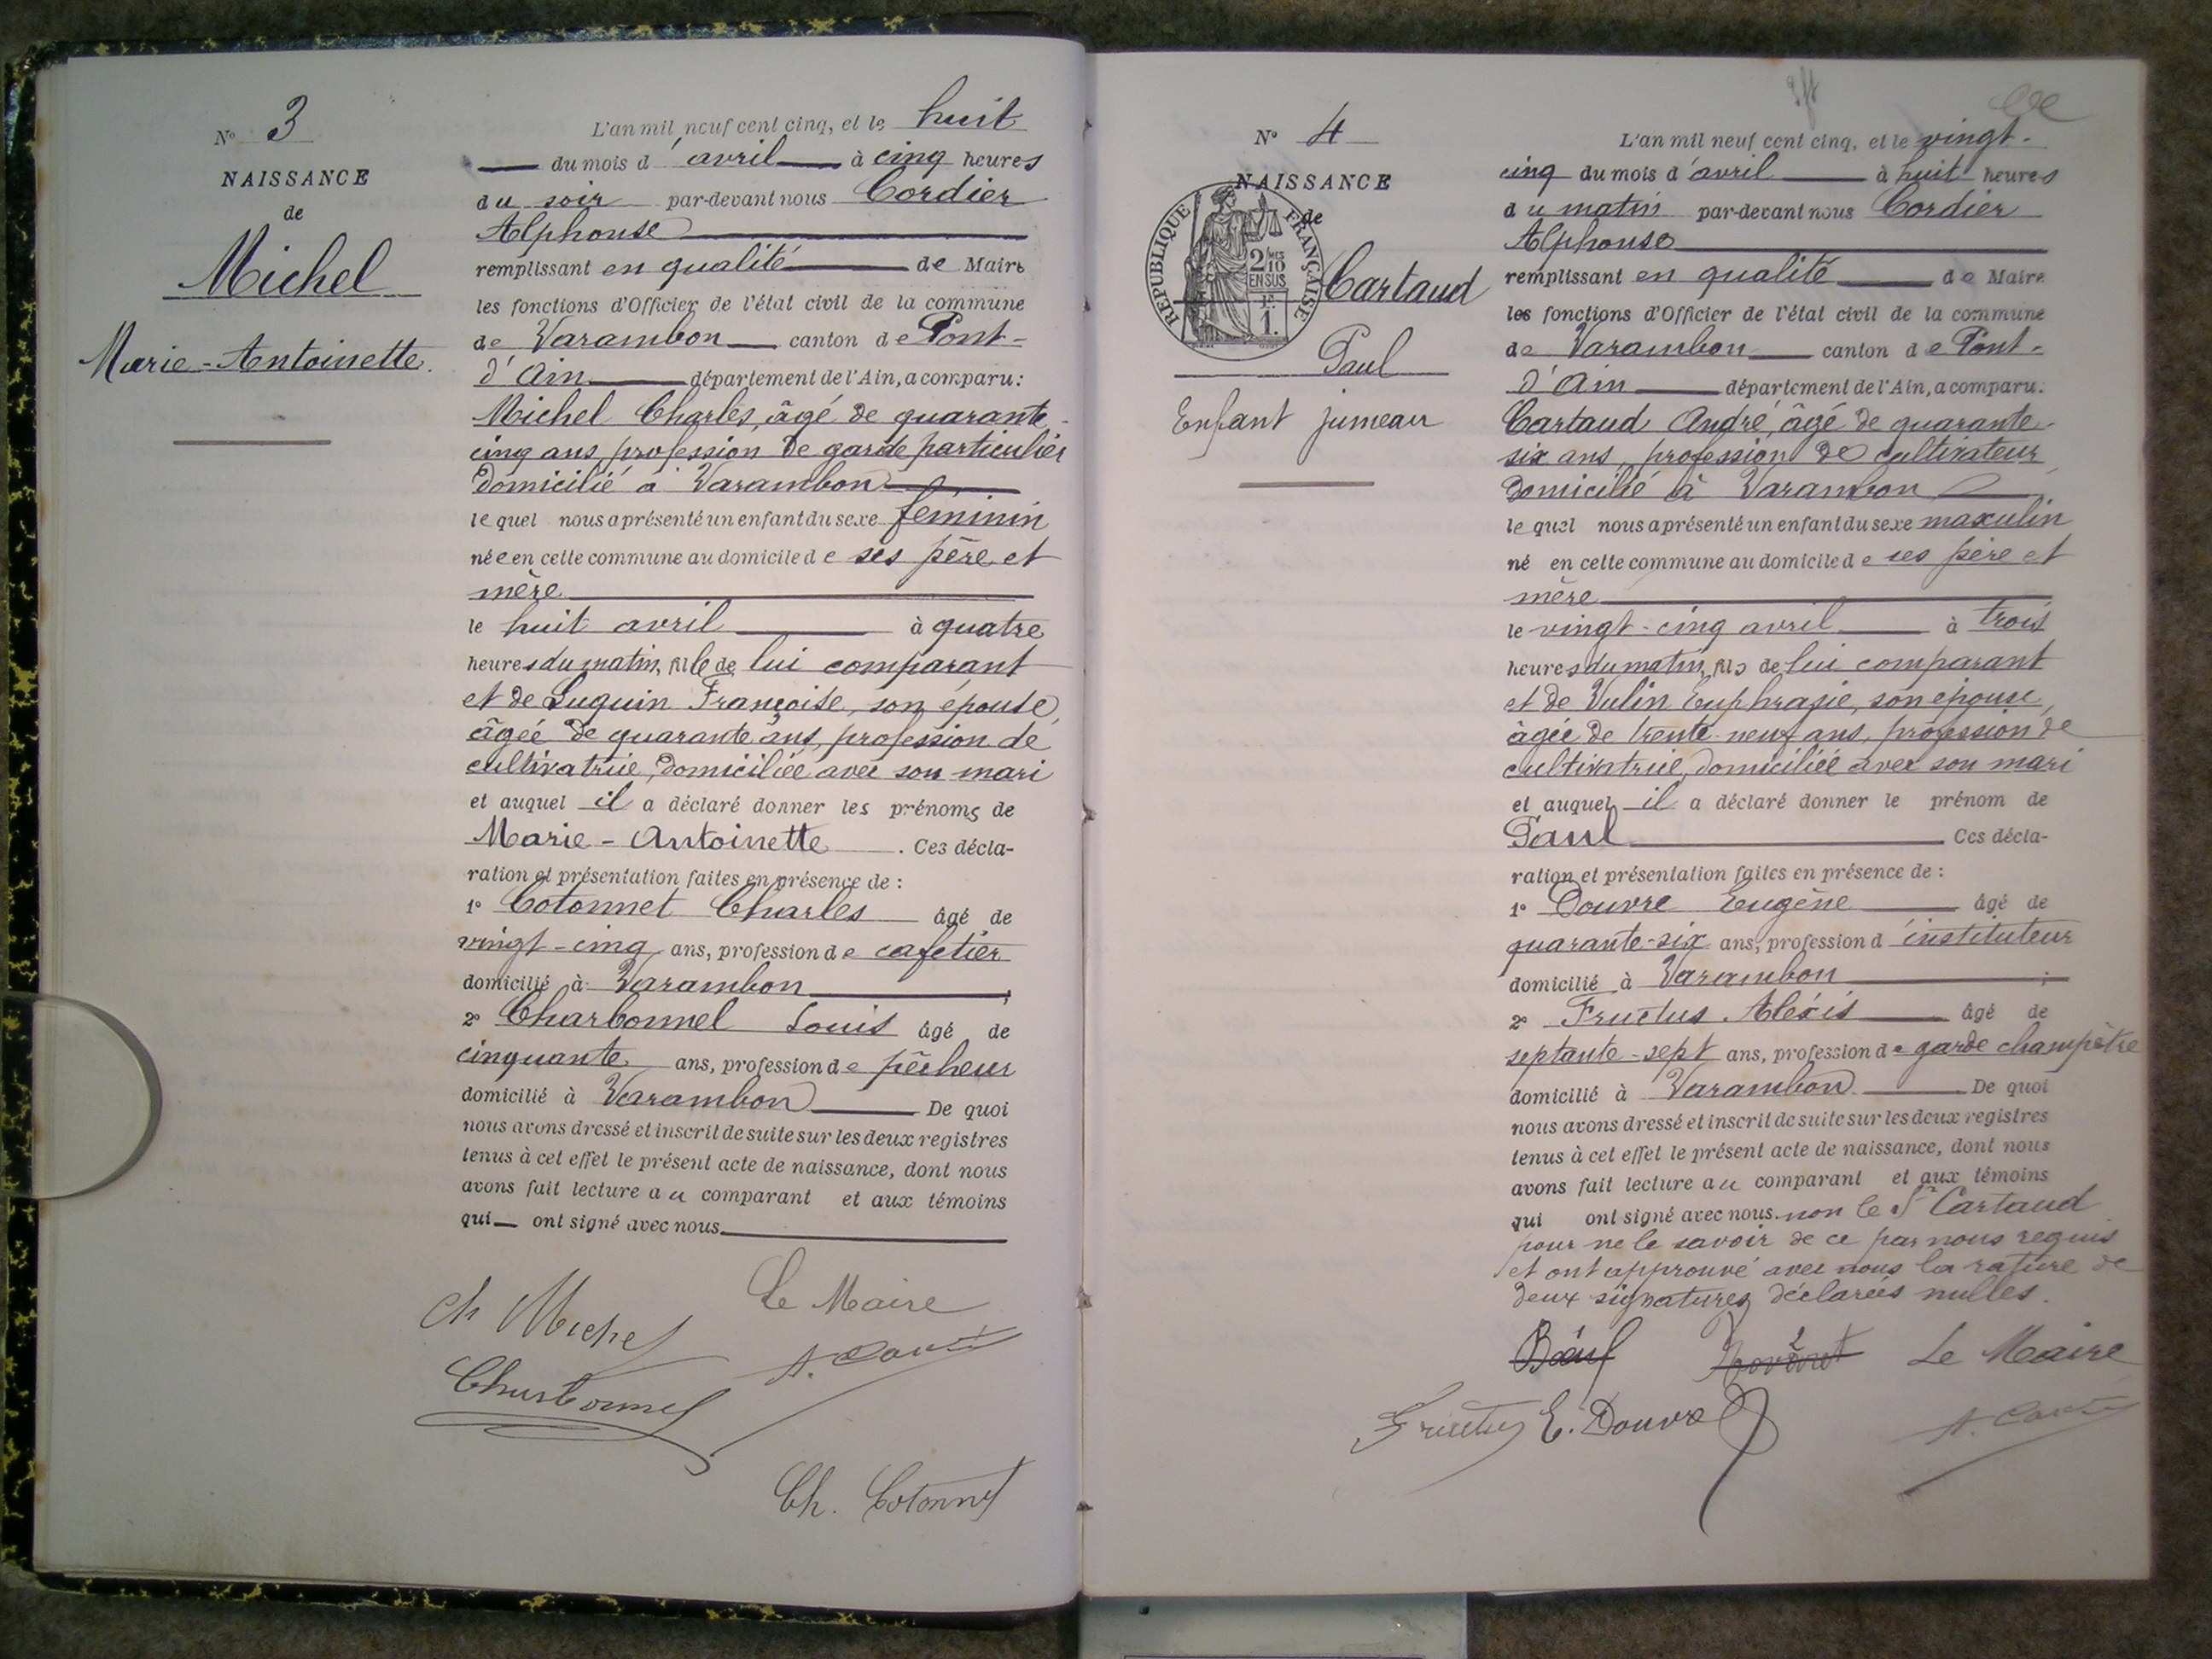 N° 3
NAISSANCE
de
Michel
Marie-Antoinette.
L'an mil neuf cent cinq, et le huit
du mois d'avril à cinq heures
du soir par-devant nous Cordier
Alphonse
remplissant en qualité de Maire
les fonctions d'Officier de l'état civil de la commune
de Varambon canton de Pont-
d'Ain département de l'Ain, a comparu:
Michel Charles, âgé de quarante-
cinq ans, profession de garde particulier
domicilié à Varambon
lequel nous a présenté un enfant du sexe féminin
née en cette commune au domicile de ses père et
mère
le huit avril à quatre
heures du matin, fille de lui comparant
et de Luquin Françoise, son épouse,
âgée de quarante ans, profession de
cultivatrice, domiciliée avec son mari
et auquel il a déclaré donner les prénoms de
Marie-Antoinette. Ces décla-
ration et présentation faites en présence de :
1° Cotonnet Charles âgé de
vingt-cinq ans, profession de cafetier
domicilié à Varambon,
2° Charbonnel Louis âgé de
cinquante ans, profession de pêcheur
domicilié à Varambon De quoi
nous avons dressé et inscrit de suite sur les deux registres
tenus à cet effet le présent acte de naissance, dont nous
avons fait lecture au comparant et aux témoins
qui ont signé avec nous
Ch Michel
Le Maire
Charbonnel
Ch. Cotonnet
N° 4
NAISSANCE
de
RÉPUBLIQUE FRANÇAISE
2/10 MES
EN SUS
1.
Cartaud
Paul
Enfant jumeau
L'an mil neuf cent cinq, et le vingt-
cinq du mois d'avril à huit heures
du matin par-devant nous Cordier
Alphonse
remplissant en qualité de Maire
les fonctions d'Officier de l'état civil de la commune
de Varambon canton de Pont-
d'Ain département de l'Ain, a comparu:
Cartaud André, âgé de quarante-
six ans, profession de cultivateur
domicilié à Varambon
lequel nous a présenté un enfant du sexe masculin
né en cette commune au domicile de ses père et
mère
le vingt-cinq avril à trois
heures du matin, fils de lui comparant
et de Vulin Euphrasie, son épouse,
âgée de trente-neuf ans, profession de
cultivatrice, domiciliée avec son mari
et auquel il a déclaré donner le prénom de
Paul Ces décla-
ration et présentation faites en présence de :
1° Douvre Eugène âgé de
quarante-six ans, profession d'instituteur
domicilié à Varambon ;
2° Fructus Alexis âgé de
septante-sept ans, profession de garde champêtre
domicilié à Varambon De quoi
nous avons dressé et inscrit de suite sur les deux registres
tenus à cet effet le présent acte de naissance, dont nous
avons fait lecture au comparant et aux témoins
qui ont signé avec nous non le Sr Cartaud
pour ne le savoir de ce par nous requis
et ont approuvé avec nous la rature de
deux signatures déclarées nulles.
Bœuf
Le Maire
Fructus E. Douvre